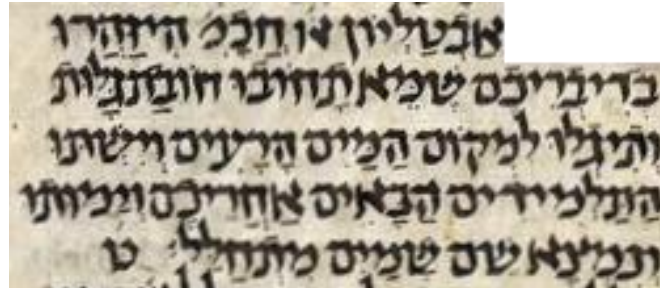 אבטליון או חכמ היזהרו
בדיבריכם שמא תחובו חובת גלות
ותיגלו למקום המים הרעים וישתו
התלמידים הבאים אחריכם וימותו
ונמצא שם שמים מתחלל׃ ט